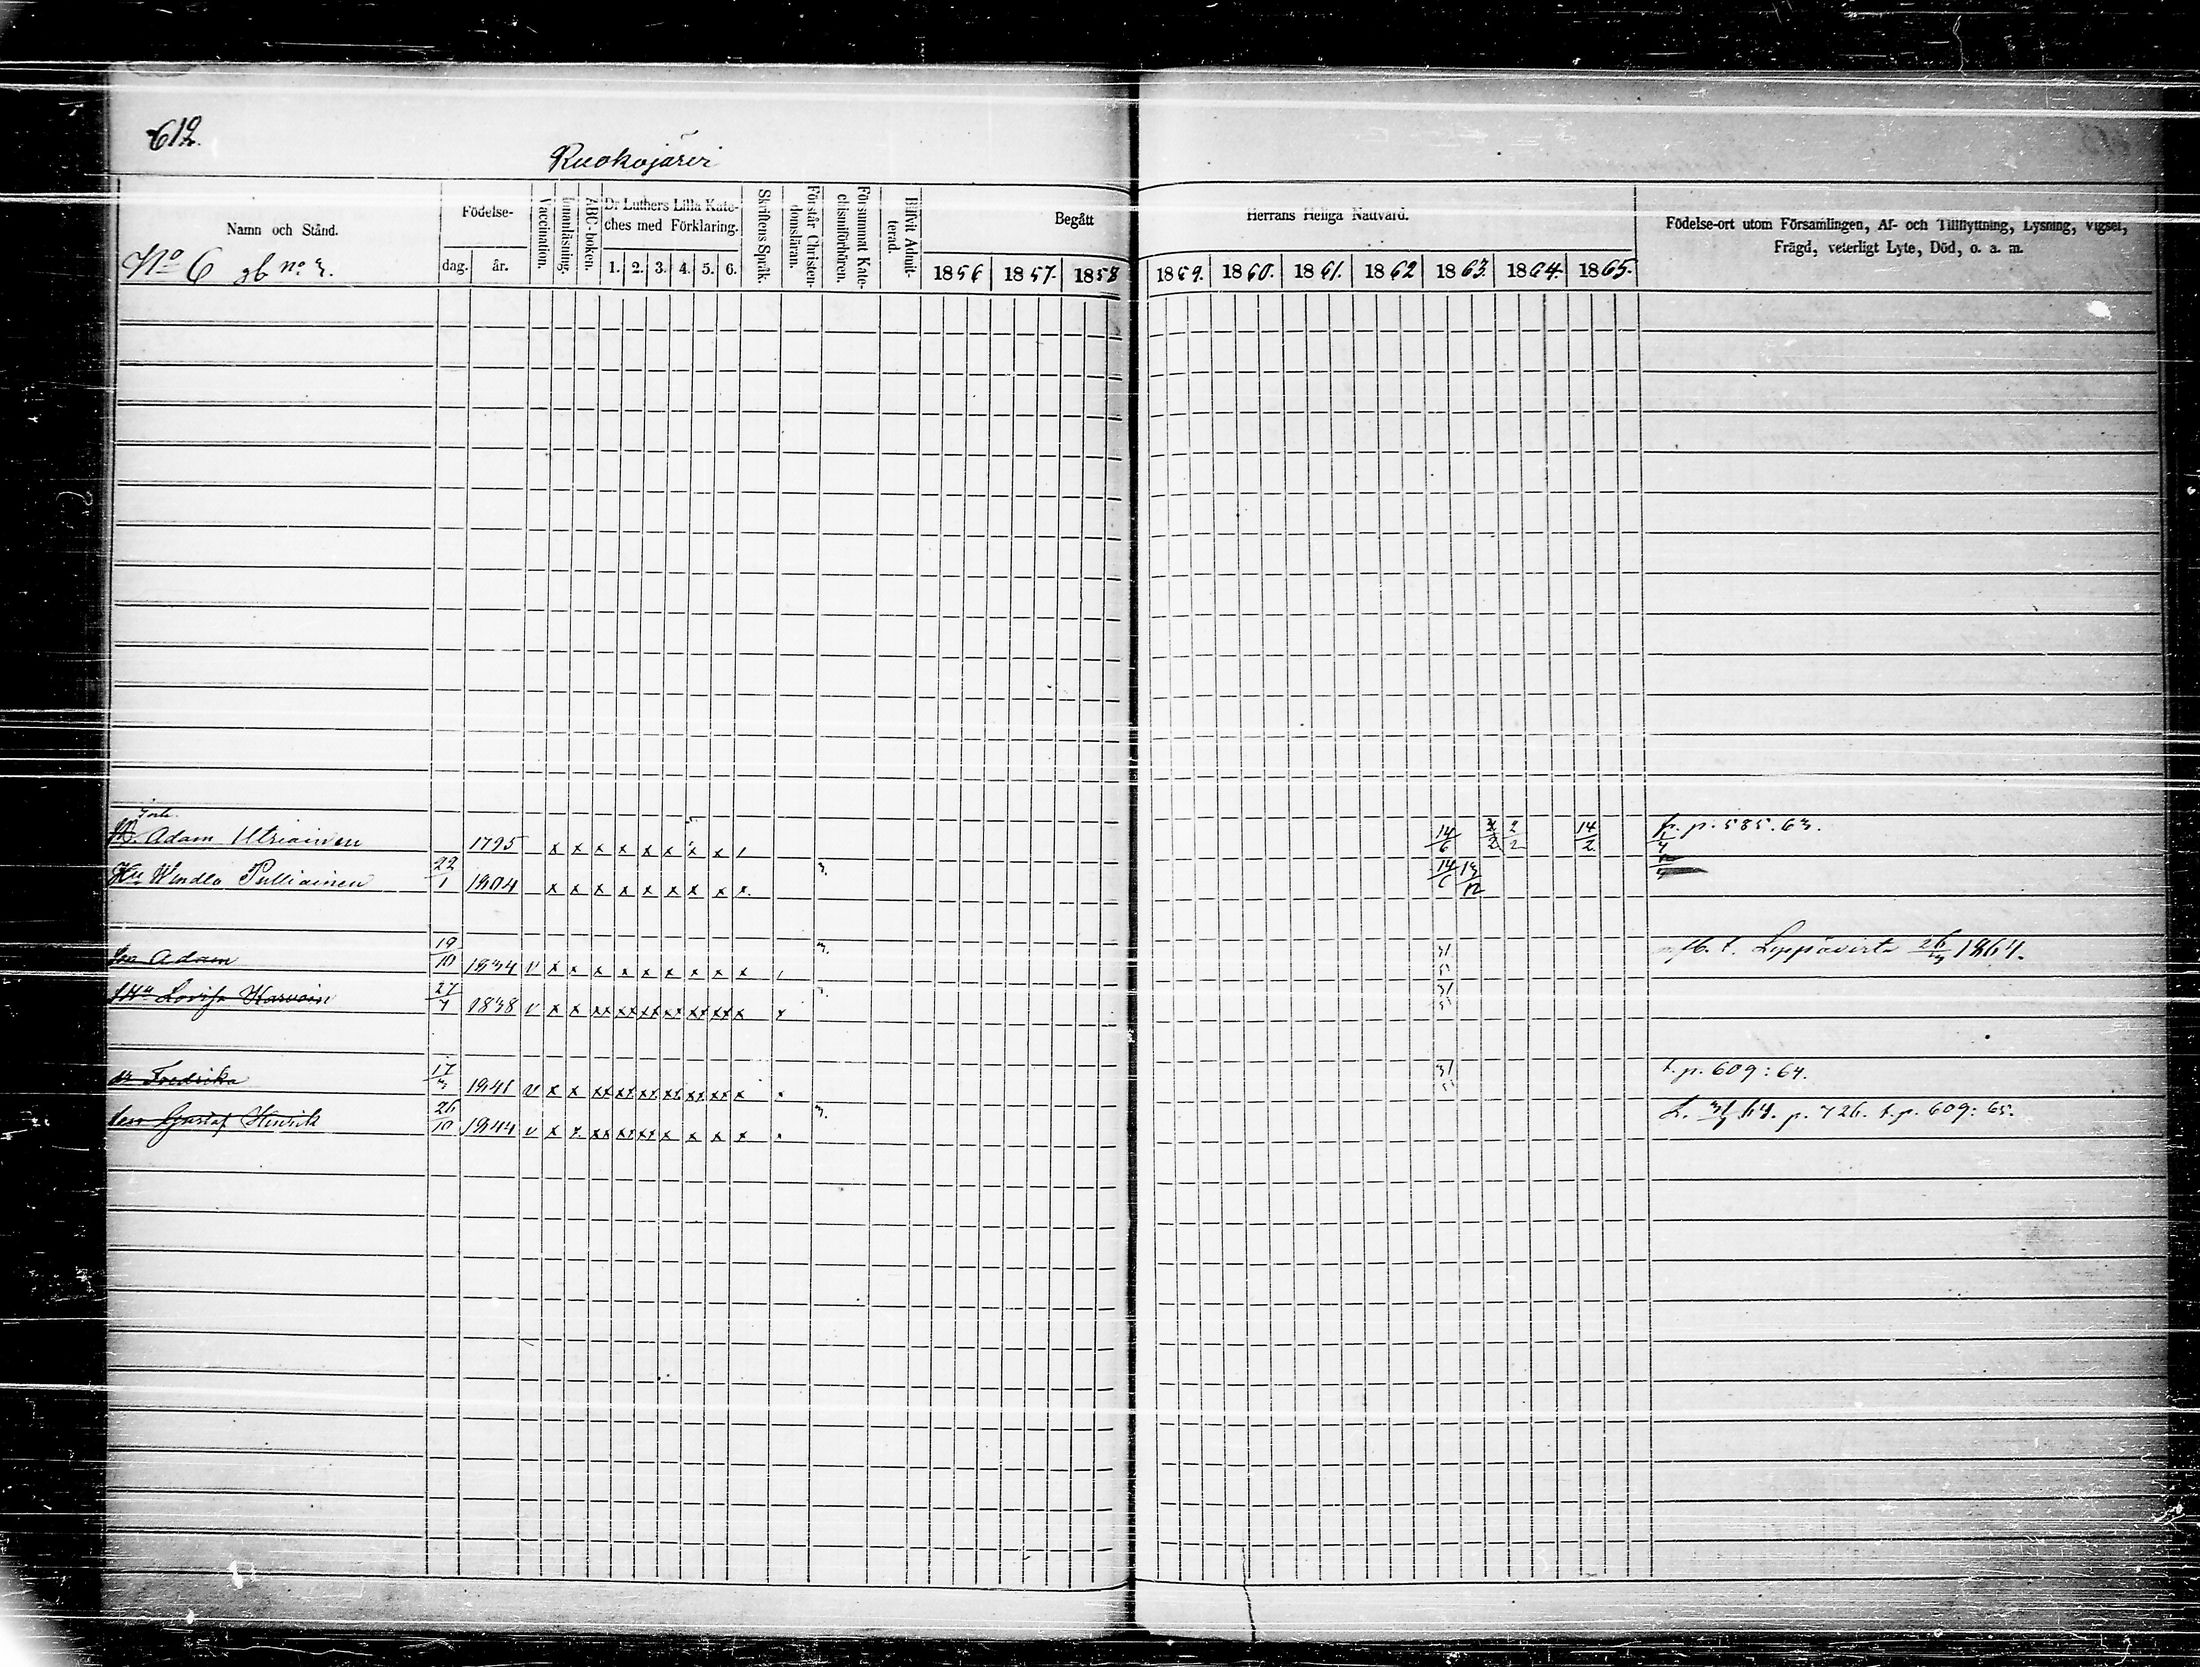 612.
Ruokojärvi
Namn och Stånd.
No 6 gb no 3.
Födelse-
dag. år.
Vaccination.
Innanläsning.
ABC-boken.
Dr Luthers Lilla Kate-
ches med Förklaring.
1. 2. 3. 4. 5. 6.
Skriftens Språk.
Förstår Christen-
domsläran.
Försummat Kate-
chismiförhören.
Blifvit Admit-
terad.
Begått Herrans Heliga Nattvard.
1856 1857. 1858 1859. 1860. 1861. 1862 1863. 1864. 1865.
Födelse-ort utom Församlingen, Af- och Tillflyttning, Lysning, Vigsel,
Frägd, veterligt Lyte, Död, o. a. m.
Adam Utriainen 1795 x x x x x x x x 14/6 2/2 14/2 fr. p. 585. 63.
Hu Wendla Pulliainen 22/1 1804 x x x x x x x x x 3. 14/6 13/12
Son Adam 19/10 1834 v x x x x x x x x x 3. 31/5 t. Leppävirta 1864.
Hu Lovisa Karvoin 27/7 1838 v x x xx xx xx xx xx xx x x 31/5
dr Fredrika 17/3 1841 v x x xx xx xx xx xx xx x 31/5 t. p. 609: 64.
son Gustaf Henrik 26/10 1844 v x x xx xx xx x x x x 3. 64. p. 726. t. p. 609: 65.